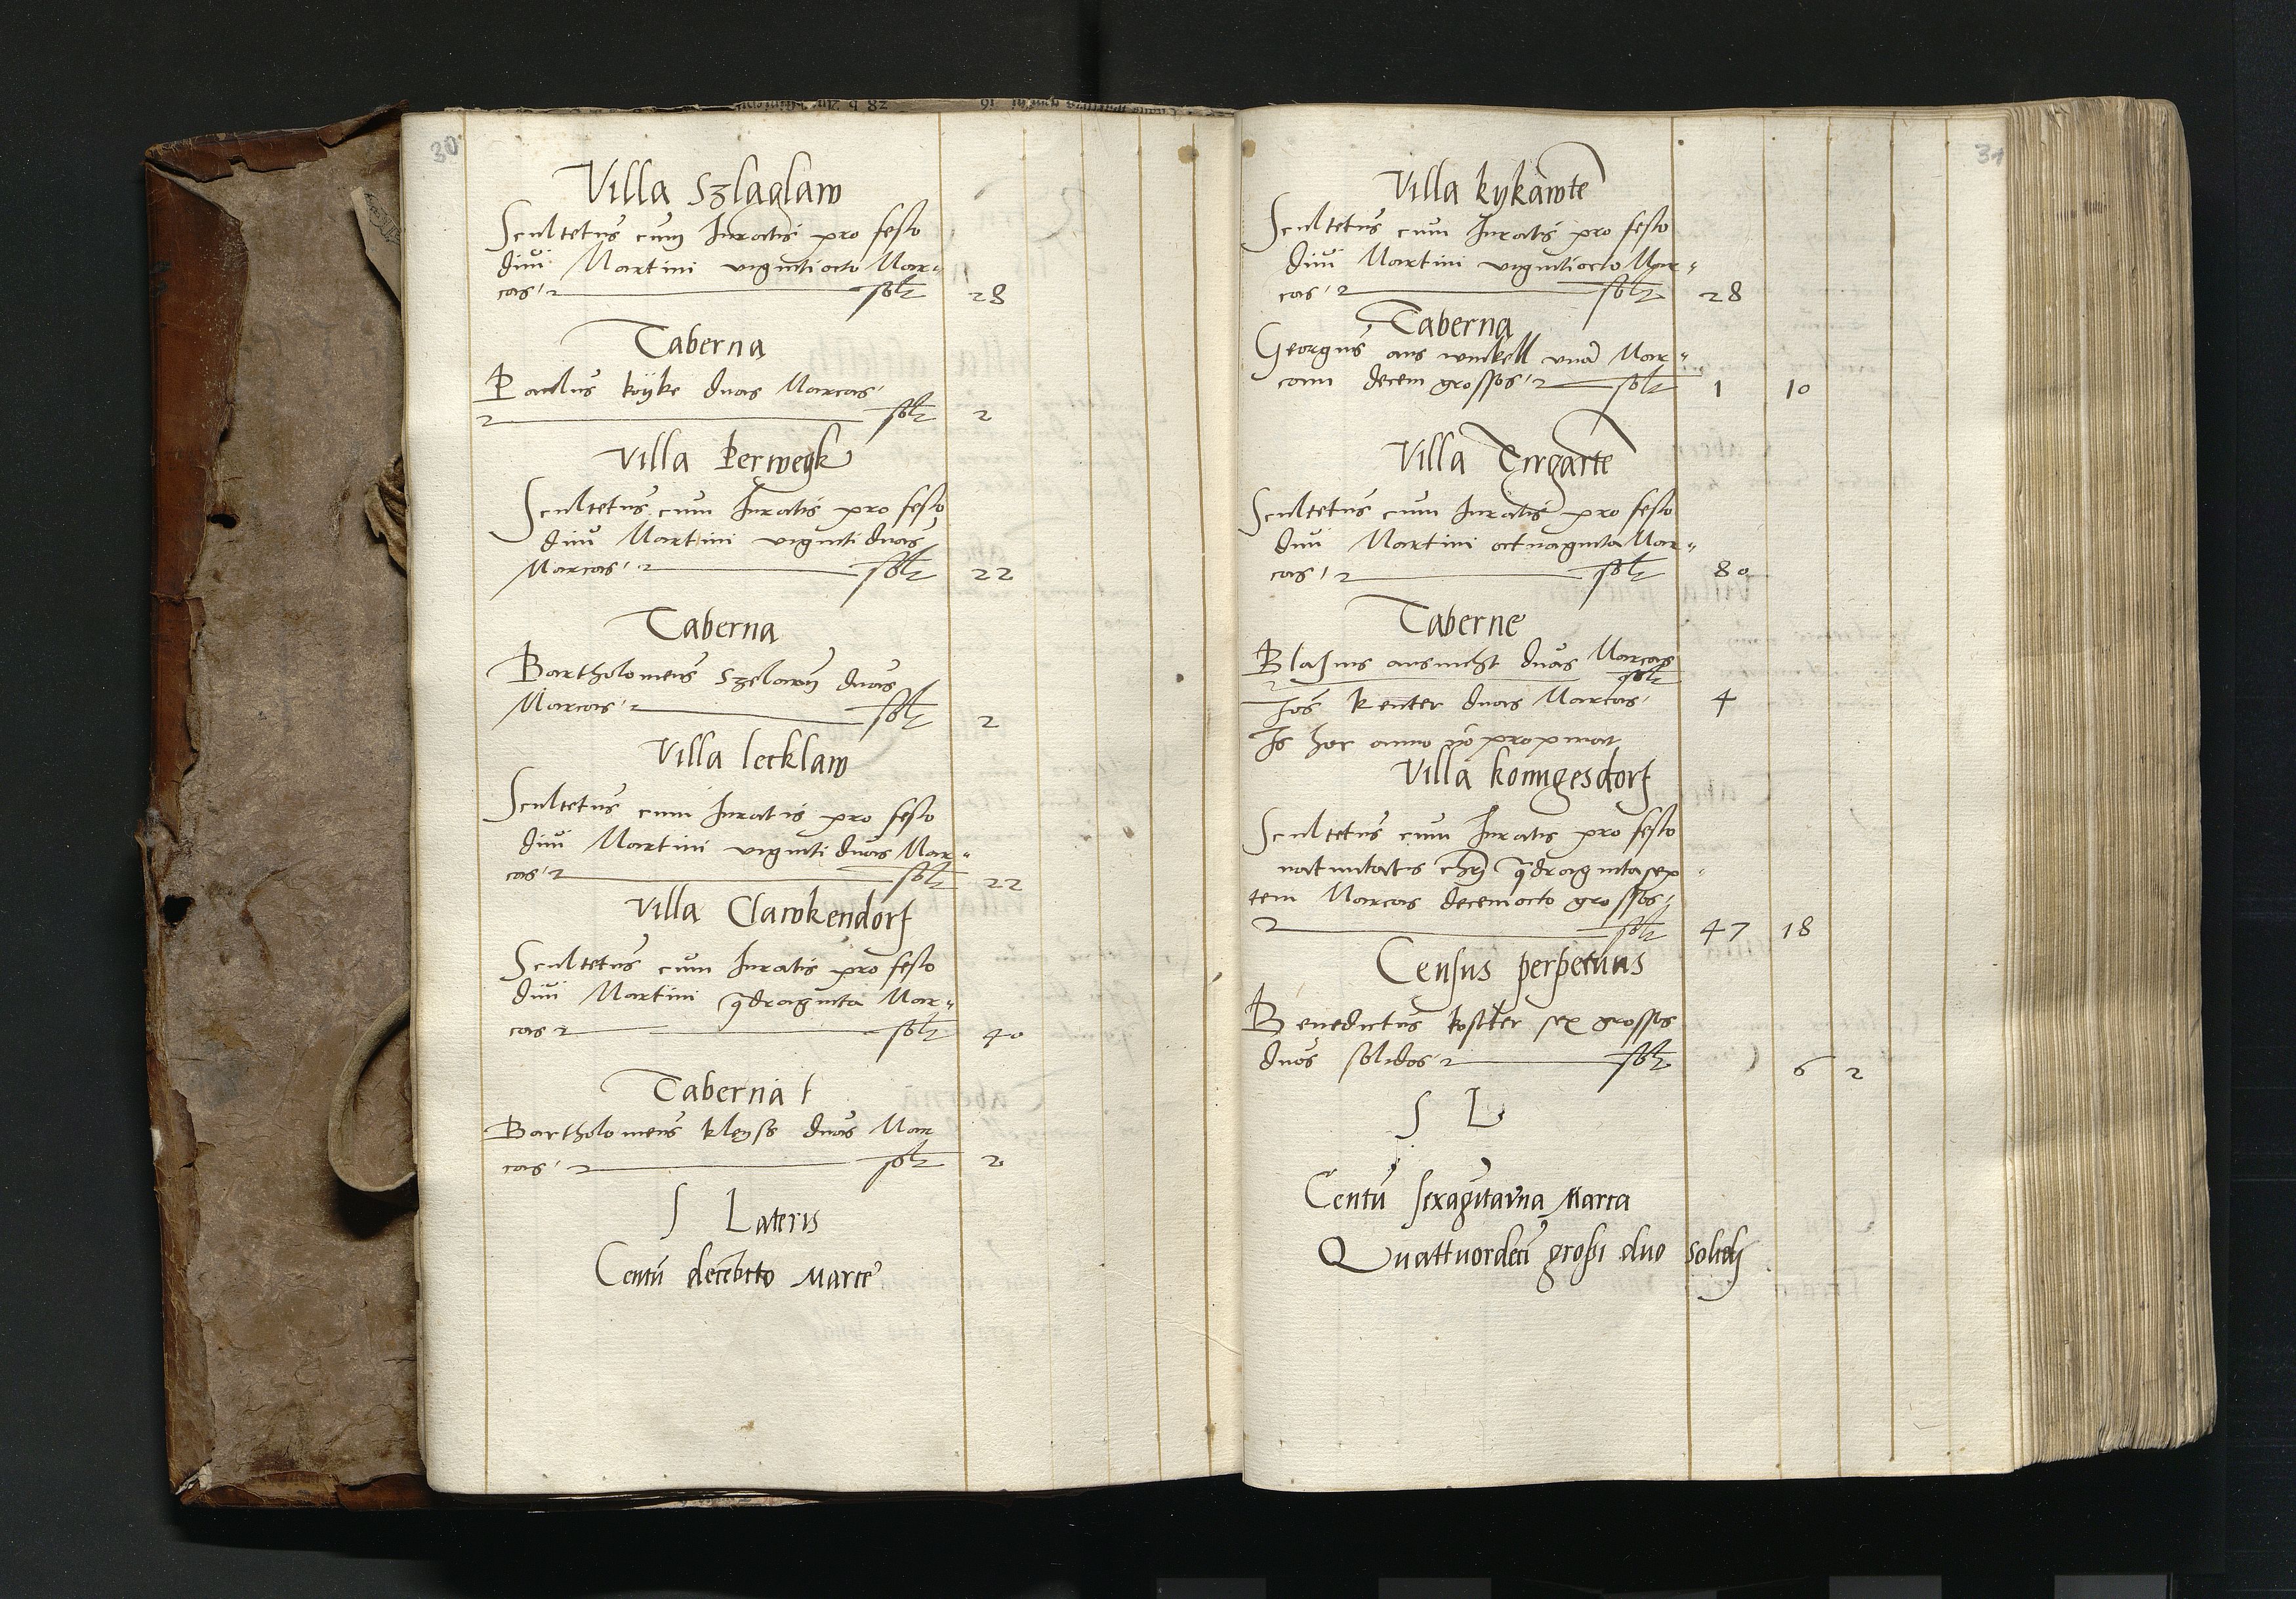 30
Villa Szlaglaw
Scultetus cum Iuratis pro festo
divi Martini vigintiocto Mar„
cas solt 28
Taberna
Paulus köyke duas Marcas
solt 2
Villa Perwegk
Scultetus cum Iuratis pro festo
divi Martini viginti duas
Marcas solt 22
Taberna
Bartholomeus Szelawn duas
Marcas solt 2
Villa lecklaw
Scultetus cum Iuratis pro festo
divi Martini viginti duas Mar„
cas solt 22
Villa Clawkendorf
Scultetus cum Iuratis pro festo
divi Martini qdraginta Mar„
cas solt 40
Taberna
Bartholomeus kleyss duas Mar
cas solt 2
S Lateris
Centū decēocto Marce
31
Villa kykawte
Scultetus cum Iuratis pro festo
divi Martini vigintiocto Mar„
cas solt 28
Taberna
Georgius aus winkell vnā Mar„
cam decem grossos solt 1 10
Villa Tirgarte
Scultetus cum Iuratis pro festo
divi Martini octuaginta Mar„
cas solt 80
Taberne
Blasius duas Marcas
solt
Ios kenter duas Marcas 4
Is hoc anno nō propinat
Villa konigesdorf
Scultetus cum Iuratis pro festo
natiuitatis chrī qdragintasep
tem Marcas decemocto grossos
solt 47 18
Census perpetuus
Benedictus koster sex grossos
duos solidos solt 6 2
S L
Centū sexagītavna Marca
Quattuordecī großi duo solidi